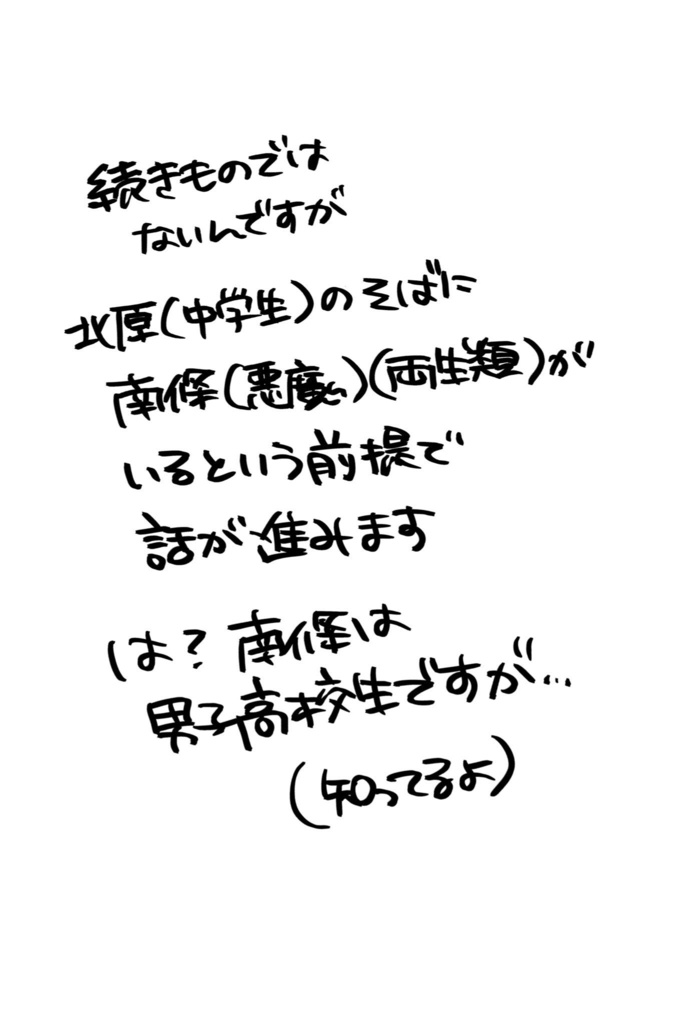 続きものでは
ないんですが
北原(中学生)のそばに
南條(悪魔)(両生類)が
いるという前提で
話が進みます
は?南條は
男子高校生ですが…
(知ってるよ)